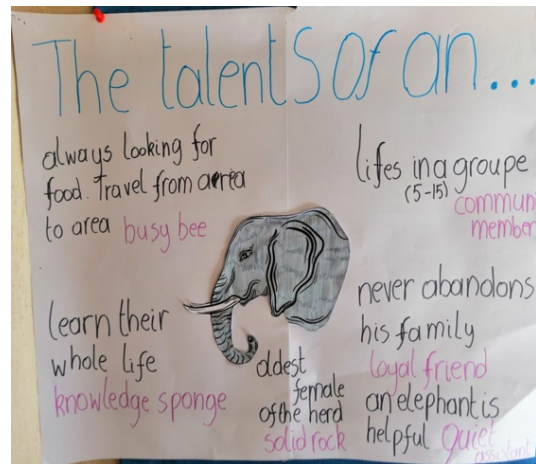 The talents of an...
always looking for
food. Travel from area
to area busy bee
lifes in a groupe
(5-15)
communi
member
learn their
whole life
knowledge sponge
oldest
female
of the herd
solid rock
never abandons
his family
loyal friend
an elephant is
helpful Quiet
assistant